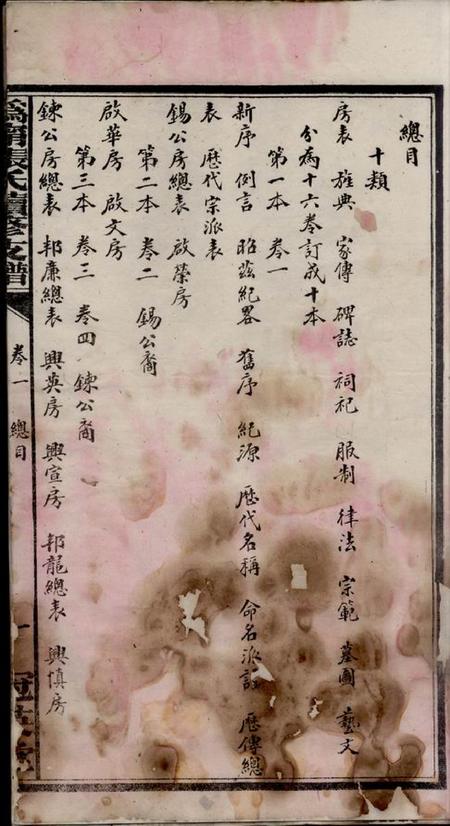 總目
十類
房表 旌典 家傳 碑誌 祠祀 服制 律法 宗範 墓圖 藝文
分為十六卷訂成十本
第一本 卷一
新序 例言 昭茲紀畧 舊序 紀源 歷代名稱 命名派註 歷傳總
表 歷代宗派表
錫公房總表 啟榮房
第二本 卷二 錫公裔
啟華房 啟文房
第三本 卷三 卷四 鍊公裔
鍊公房總表 邦廉總表 興英房 興宣房 邦龍總表 興慎房
張氏續修支譜
卷一 總目
一